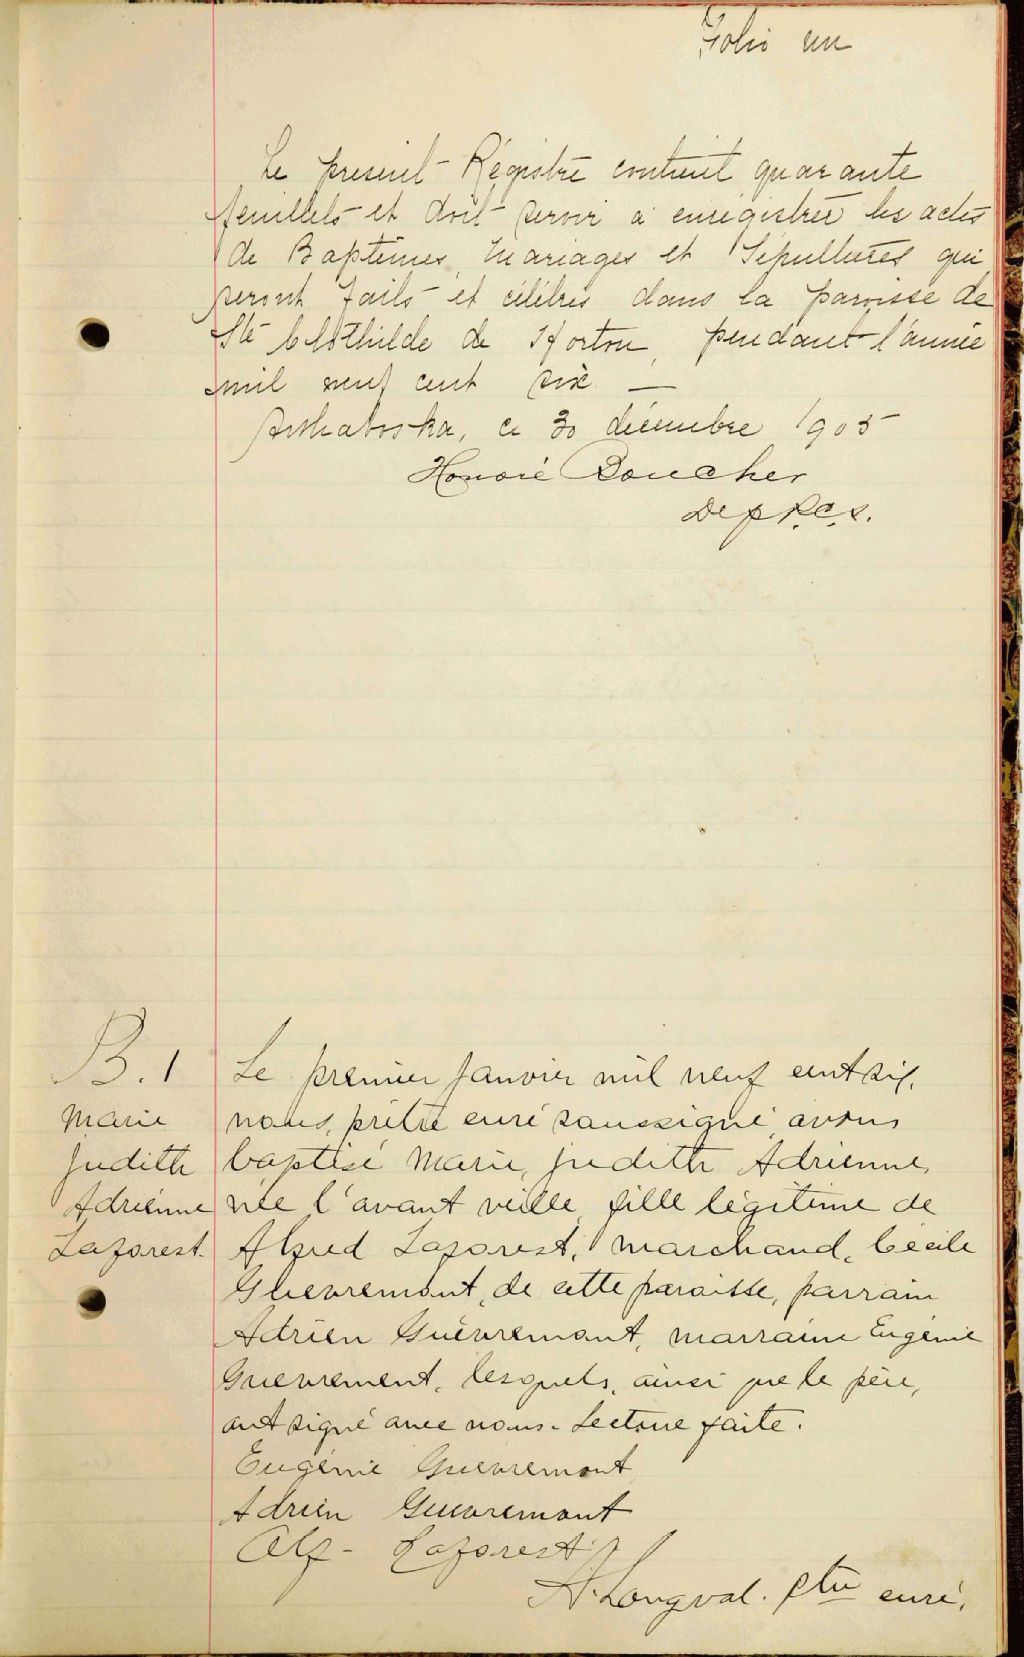 Folio un
Le present Régistre contient quarante
feuillets et doit servir à enrégistrer les actes
de Baptêmes, Mariages et Sépultures qui
seront faits et célébrés dans la paroisse de
Ste Clothilde de Horton, pendant l'année
mil neuf cent six —
Arthabaska, ce 30 décembre 1905
Honoré Boucher
Dep P.C.S.
B. 1
Marie
Judith
Adrienne
Laforest.
Le premier janvier mil neuf cent six,
nous, prêtre curé soussigné, avons
baptisé Marie, Judith Adrienne,
née l'avant veille, fille légitime de
Alfred Laforest, marchand, Cécile
Guevremont, de cette paroisse, parrain
Adrien Guèvremont, marraine Eugénie
Guevrement, lesquels, ainsi que le père,
ont signé avec nous. Lecture faite.
Eugénie Guevremont
Adrien Guevremont
Alf- Laforest
A. Longval. Ptre curé.